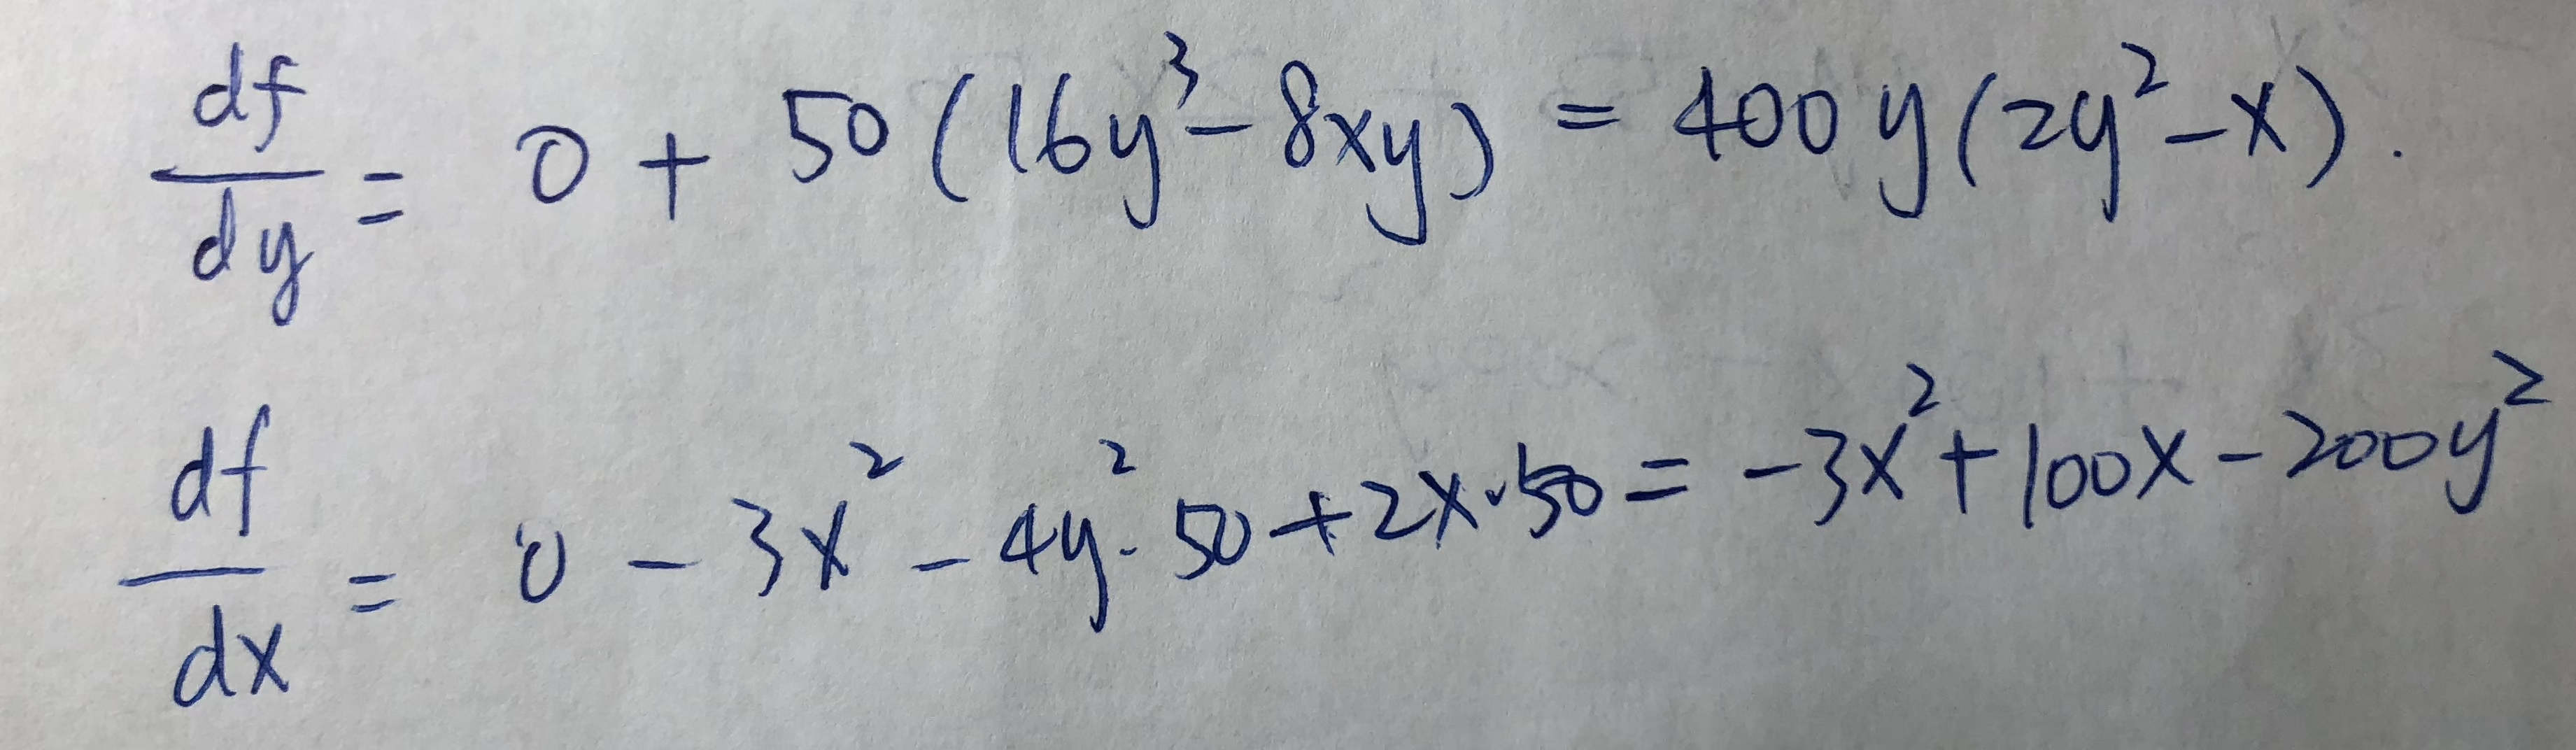 df/dy = 0 + 50 (16y³ - 8xy) = 400y(2y² - x).
df/dx = 0 - 3x² - 4y²·50 + 2x·50 = -3x² + 100x - 200y²